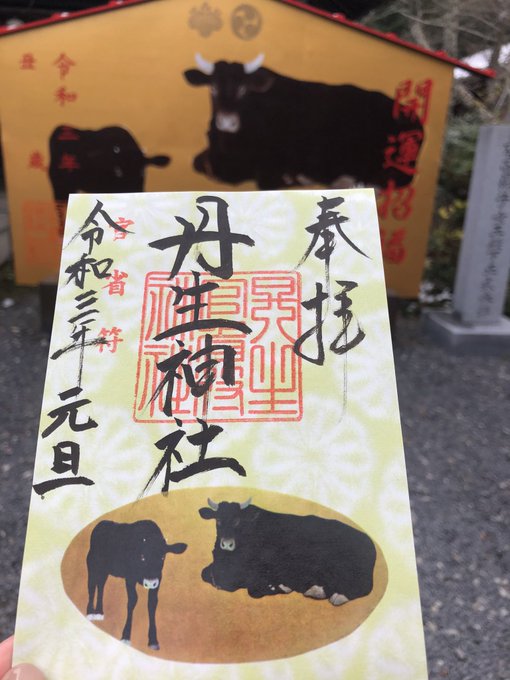 開運招福
令和三年
丑歳
奉拝
丹生神社
官省符
令和三年 元旦